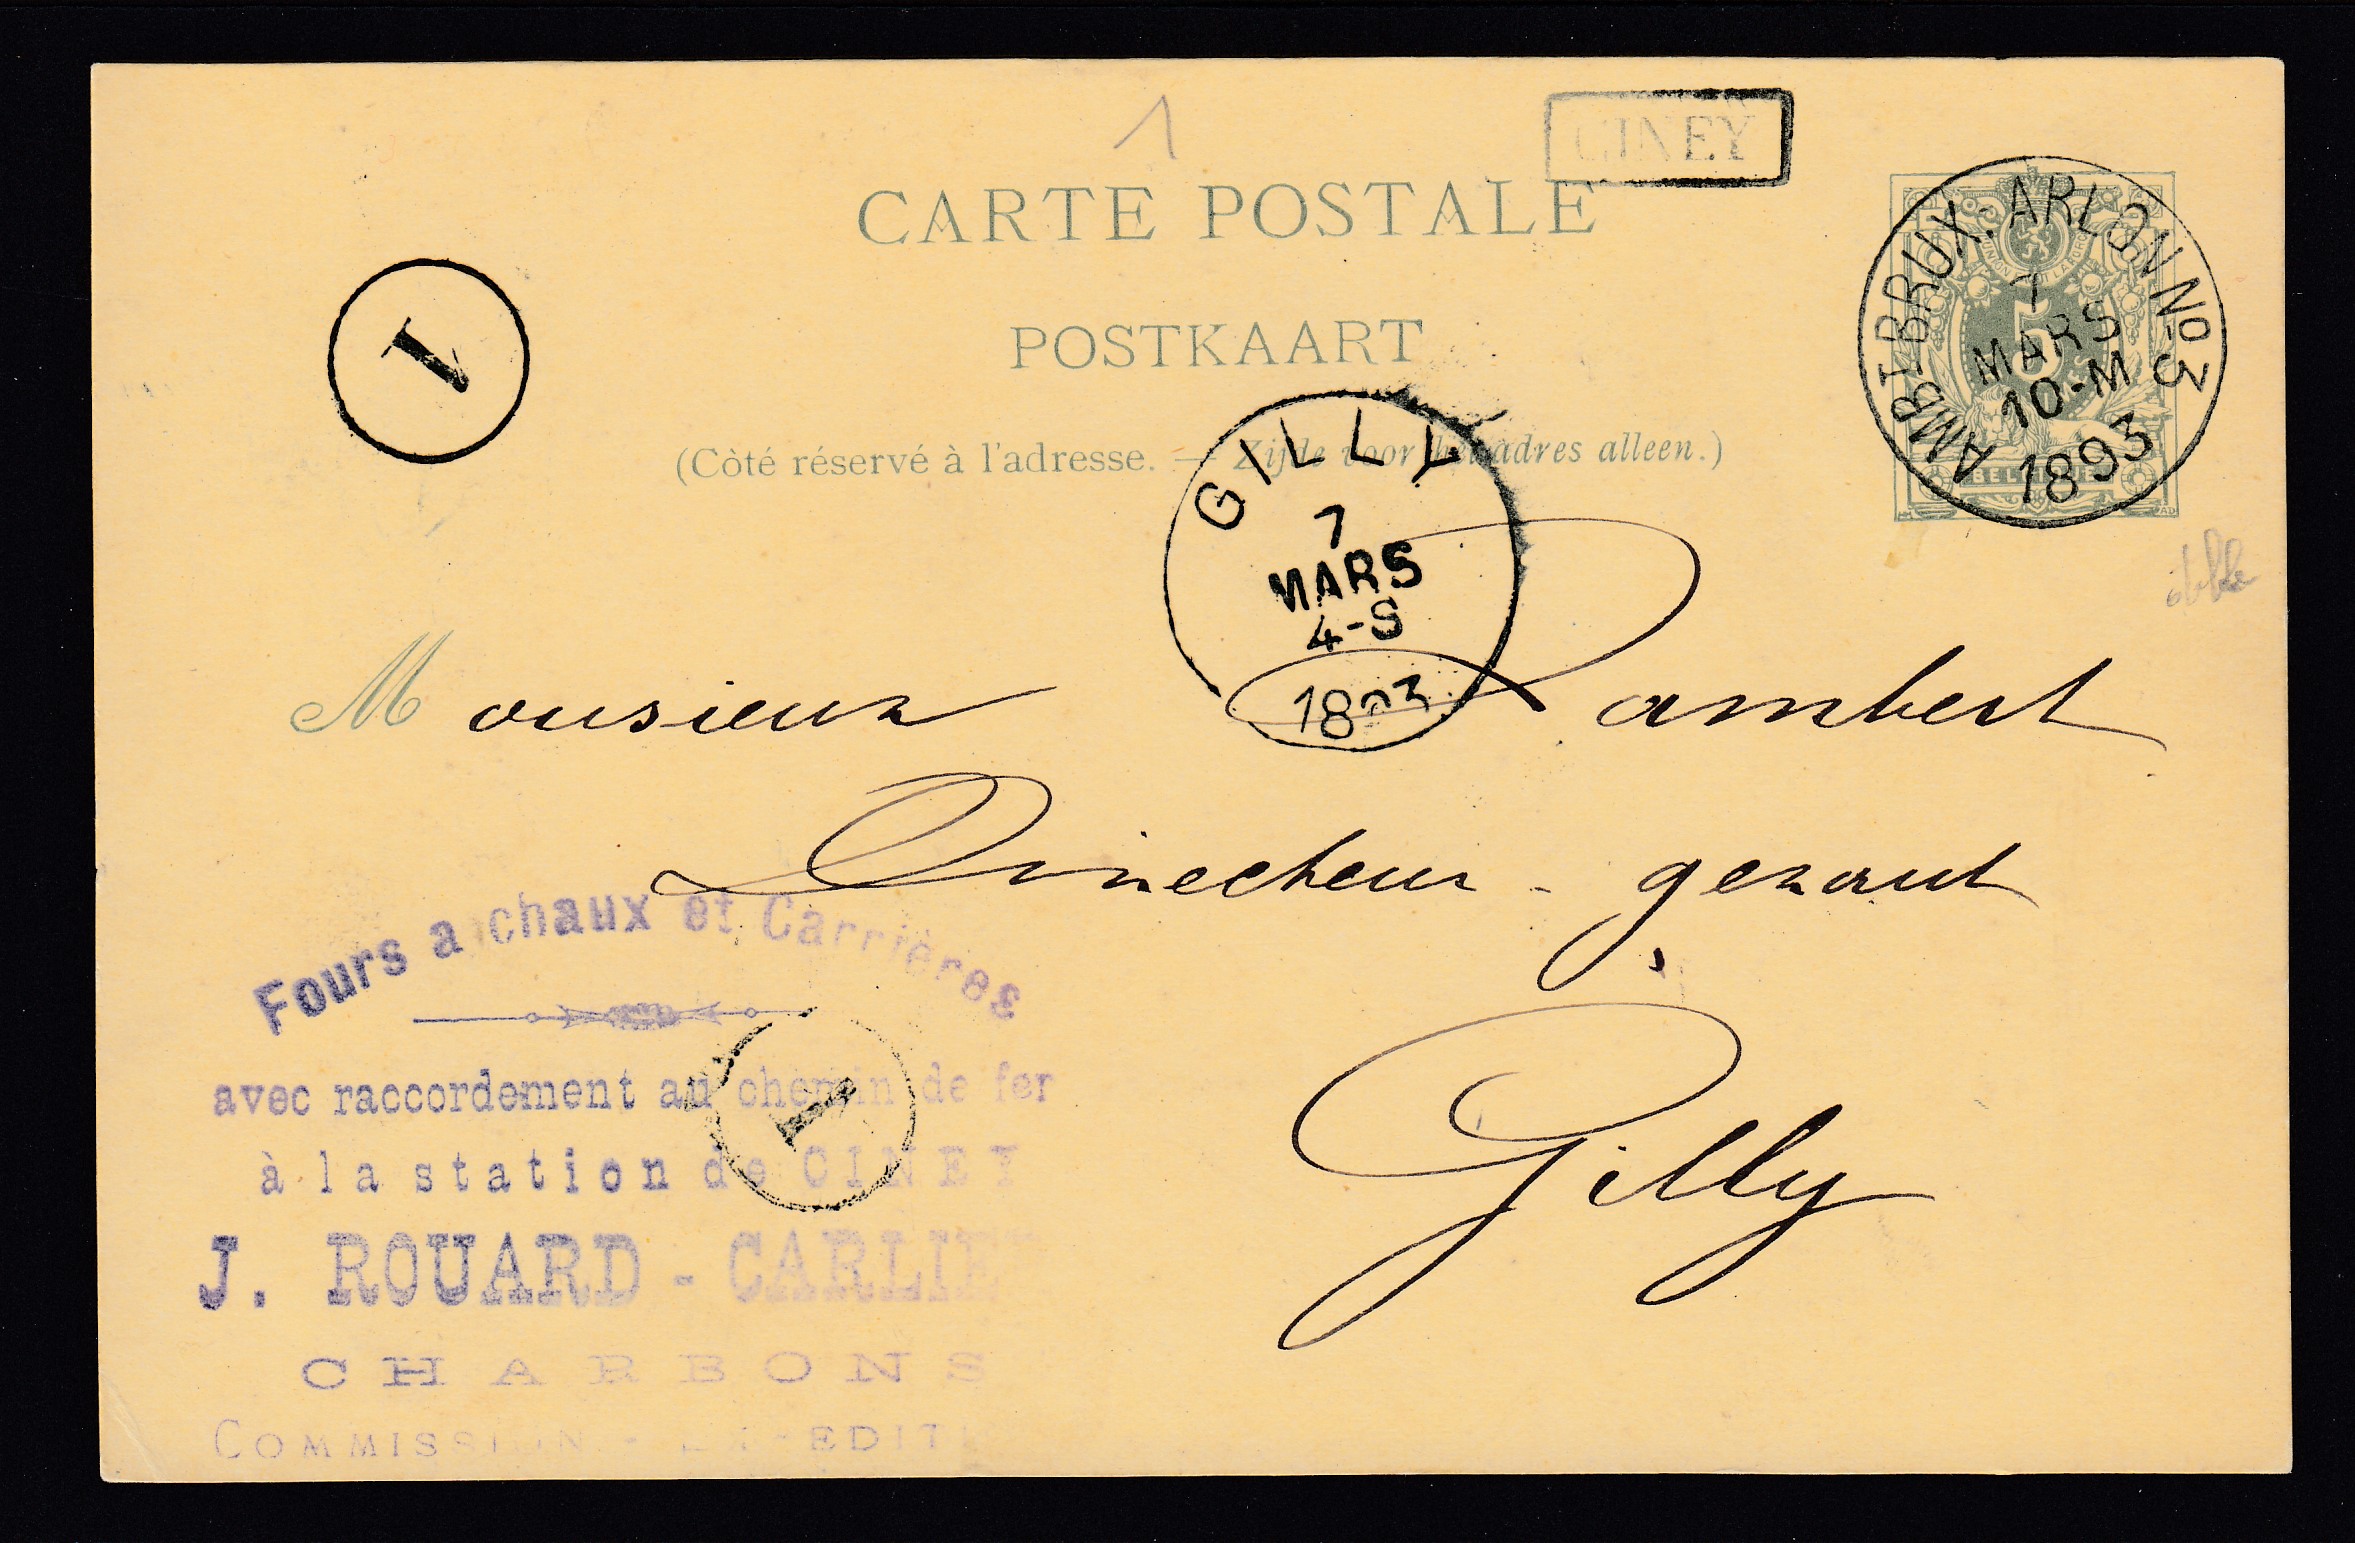 1
CINEY
CARTE POSTALE
POSTKAART
(Côté réservé à l'adresse. — Zijde voor het adres alleen.)
AMBT BRUX-ARLON No 3
7
MARS
10-M
1893
5
BELGIQUE
1
GILLY
7
MARS
4-S
1893
Monsieur Lambert
Directeur-gerant
Gilly
Fours a chaux et Carrières
avec raccordement au chemin de fer
à la station de CINEY
J. ROUARD - CARLIER
CHARBONS
COMMISSION - EXPEDITION
1